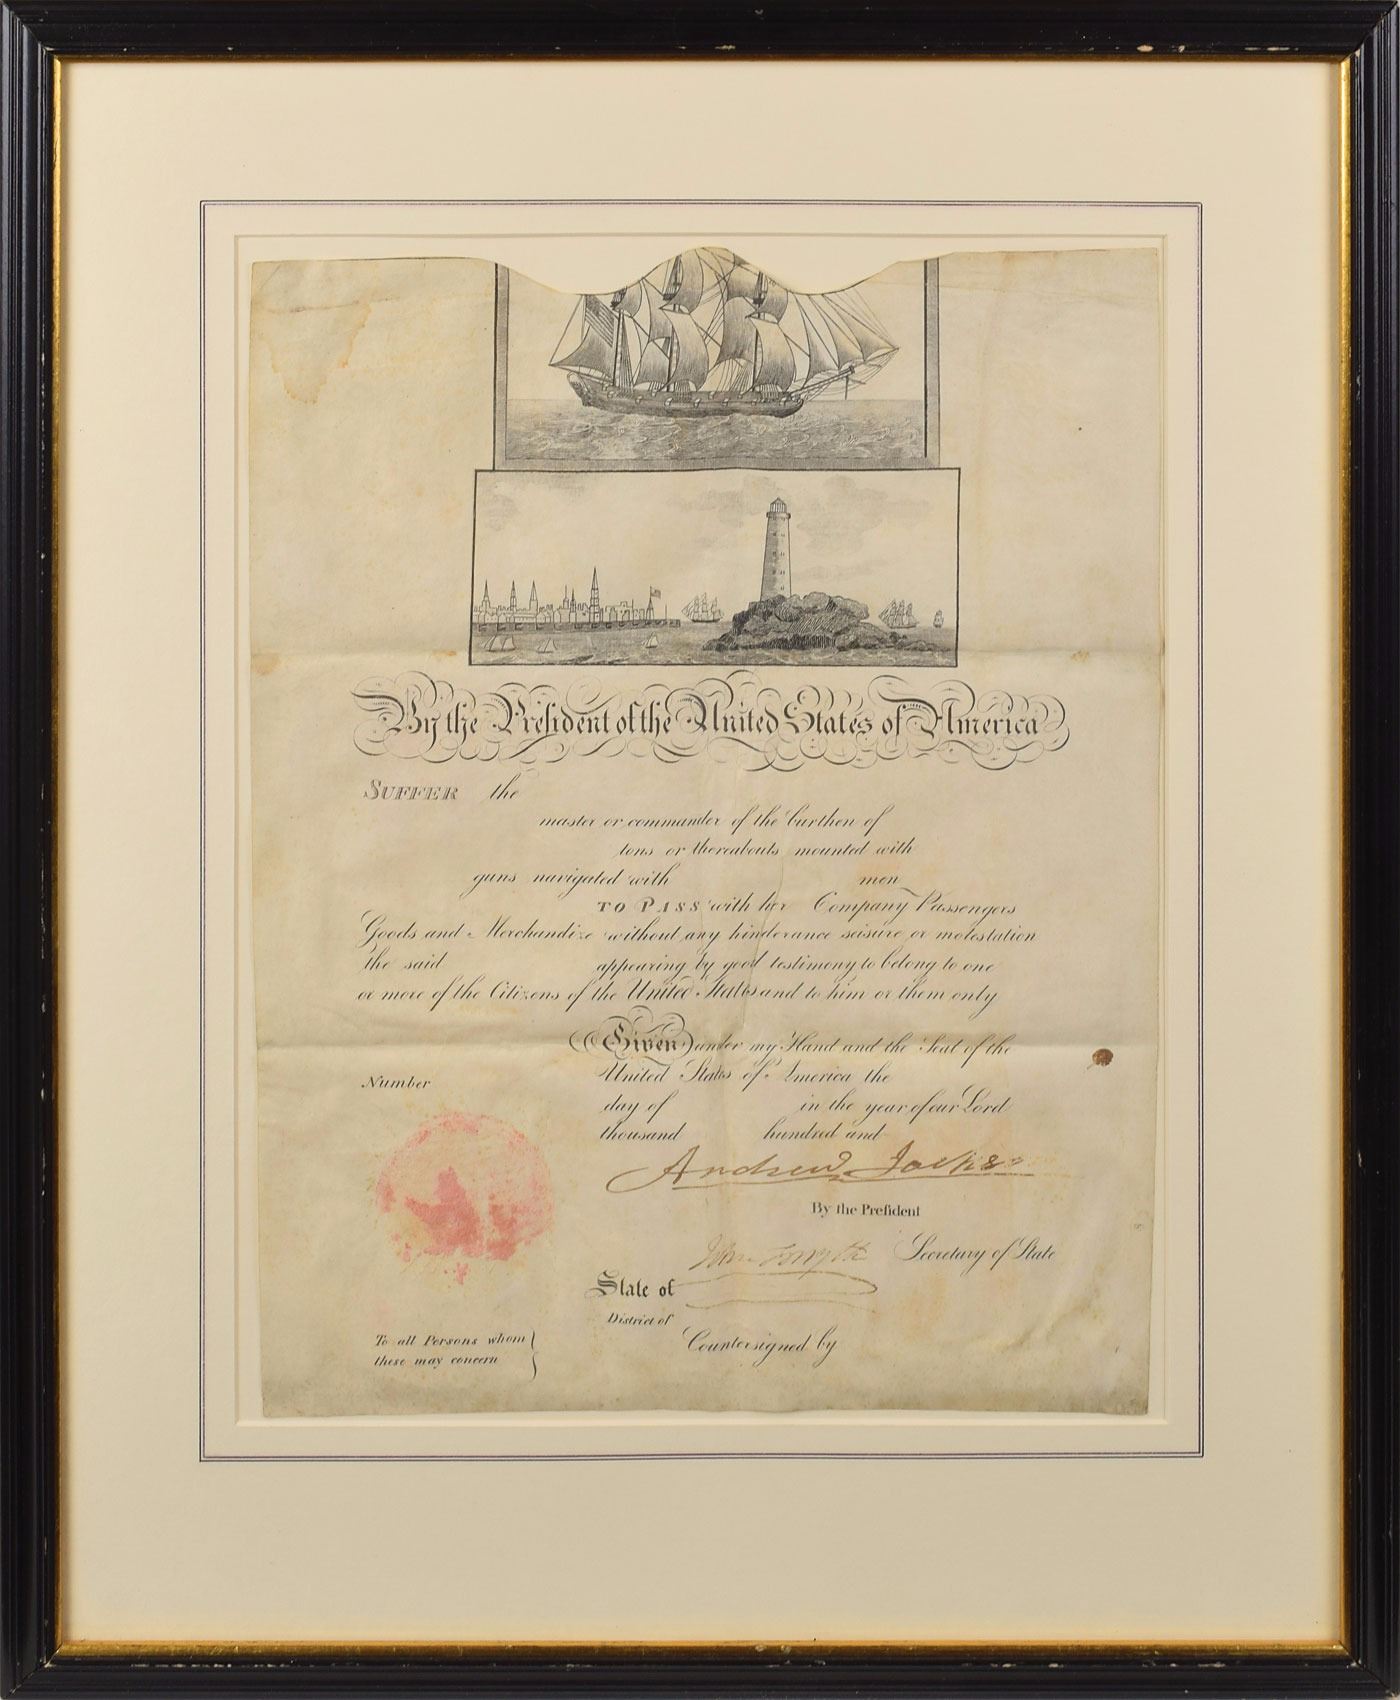 By the President of the United States of America
SUFFER the
master or commander of the burthen of
tons or thereabouts mounted with
guns navigated with men
TO PASS with her Company Passengers
Goods and Merchandize without any hinderance seisure or molestation
the said appearing by good testimony to belong to one
or more of the Citizens of the United States and to him or them only
Given under my Hand and the Seal of the
United States of America the
Number
day of in the year of our Lord
thousand hundred and
Andrew Jackson
By the Preſident
Jhn Forsyth Secretary of State
State of
District of
To all Persons whom
these may concern
Countersigned by